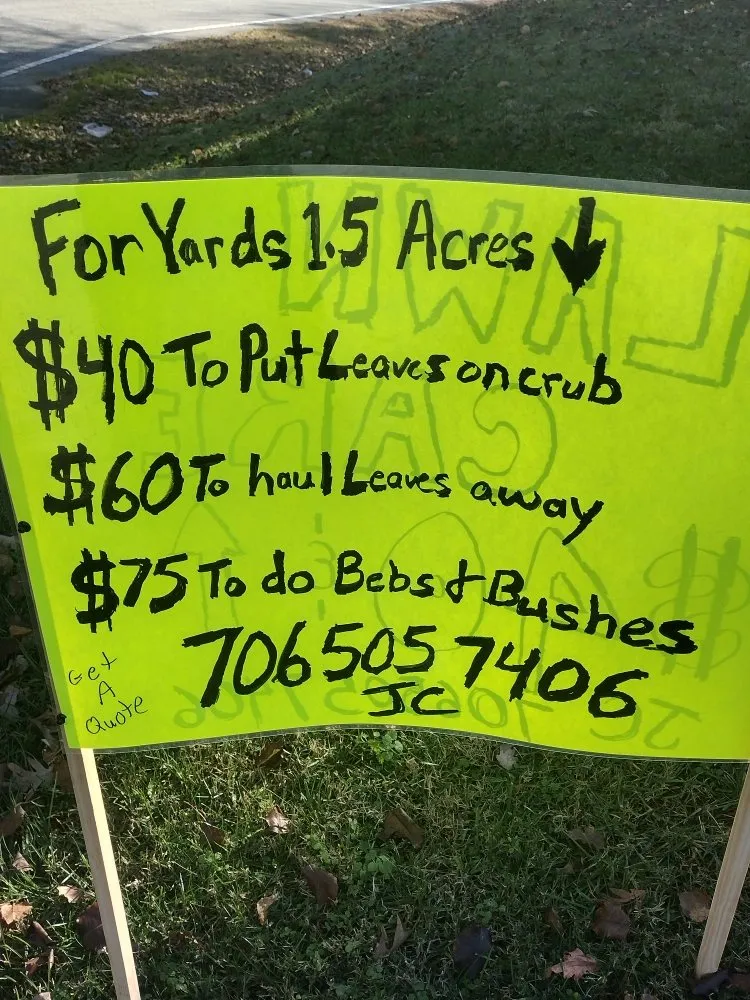 For Yards 1.5 Acres ↓
$40 To Put Leaves on crub
$60 To haul Leaves away
$75 To do Bebs & Bushes
706 505 7406
JC
Get
A
Quote
LAWN
CARE
$40 & ↑
JC 706 505 7406